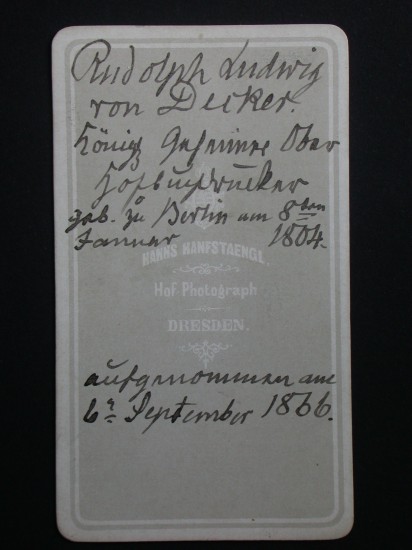 Rudolph Ludwig
von Decker.
Königl Geheimer Ober
Hofbuchdrucker
geb. zu Berlin am 8ten
Januar 1804.
HANNS HANFSTAENGL.
Hof Photograph
DRESDEN.
aufgenommen am
6t September 1866.